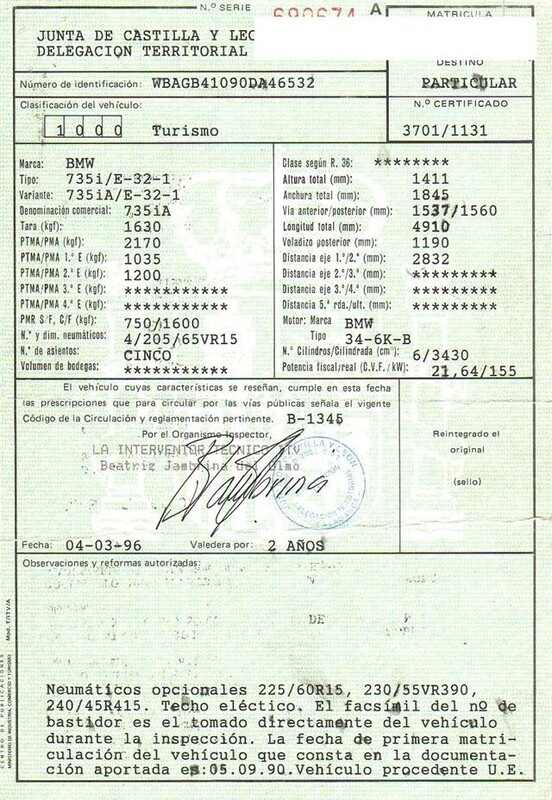 N.º SERIE 690674 A
MATRICULA
JUNTA DE CASTILLA Y LEO
DELEGACION TERRITORIAL
DESTINO
Número de identificación: WBAGB41090DA46532
PARTICULAR
Clasificación del vehículo:
N.º CERTIFICADO
1000 Turismo
3701/1131
Marca: BMW
Tipo: 735i/E-32-1
Variante: 735iA/E-32-1
Denominación comercial: 735iA
Tara (kgf): 1630
PTMA/PMA (kgf): 2170
PTMA/PMA 1.º E (kgf): 1035
PTMA/PMA 2.º E (kgf): 1200
PTMA/PMA 3.º E (kgf): ***********
PTMA/PMA 4.º E (kgf): ***********
PMR S/F, C/F (kgf): 750/1600
N.º y dim. neumáticos: 4/205/65VR15
N.º de asientos: CINCO
Volumen de bodegas: ***********
Clase según R. 36: ********
Altura total (mm): 1411
Anchura total (mm): 1845
Via anterior/posterior (mm): 1537/1560
Longitud total (mm): 4910
Voladizo posterior (mm): 1190
Distancia eje 1.º/2.º (mm): 2832
Distancia eje 2.º/3.º (mm): ********
Distancia eje 3.º/4.º (mm): ********
Distancia 5.ª rda./ult. (mm): ********
Motor: Marca BMW
Tipo 34-6K-B
N.º Cilindros/Cilindrada (cm³): 6/3430
Potencia fiscal/real (C.V.F./kW): 21,64/155
El vehículo cuyas características se reseñan, cumple en esta fecha
las prescripciones que para circular por las vías públicas señala el vigente
Código de la Circulación y reglamentación pertinente. B-1345
Por el Organismo Inspector,
LA INTERVENTOR TECNICO ITV
Beatriz Jambrina del Olmo
Reintegrado el
original
(sello)
Fecha: 04-03-96 Valedera por: 2 AÑOS
Observaciones y reformas autorizadas:
DE
Neumáticos opcionales 225/60R15, 230/55VR390,
240/45R415. Techo eléctrico. El facsímil del nº de
bastidor es el tomado directamente del vehículo
durante la inspección. La fecha de primera matri-
culación del vehículo que consta en la documenta-
ción aportada es:05.09.90.Vehículo procedente U.E.
CENTRO DE PUBLICACIONES
MINISTERIO DE INDUSTRIA, COMERCIO Y TURISMO
Mod. T/ITV/A